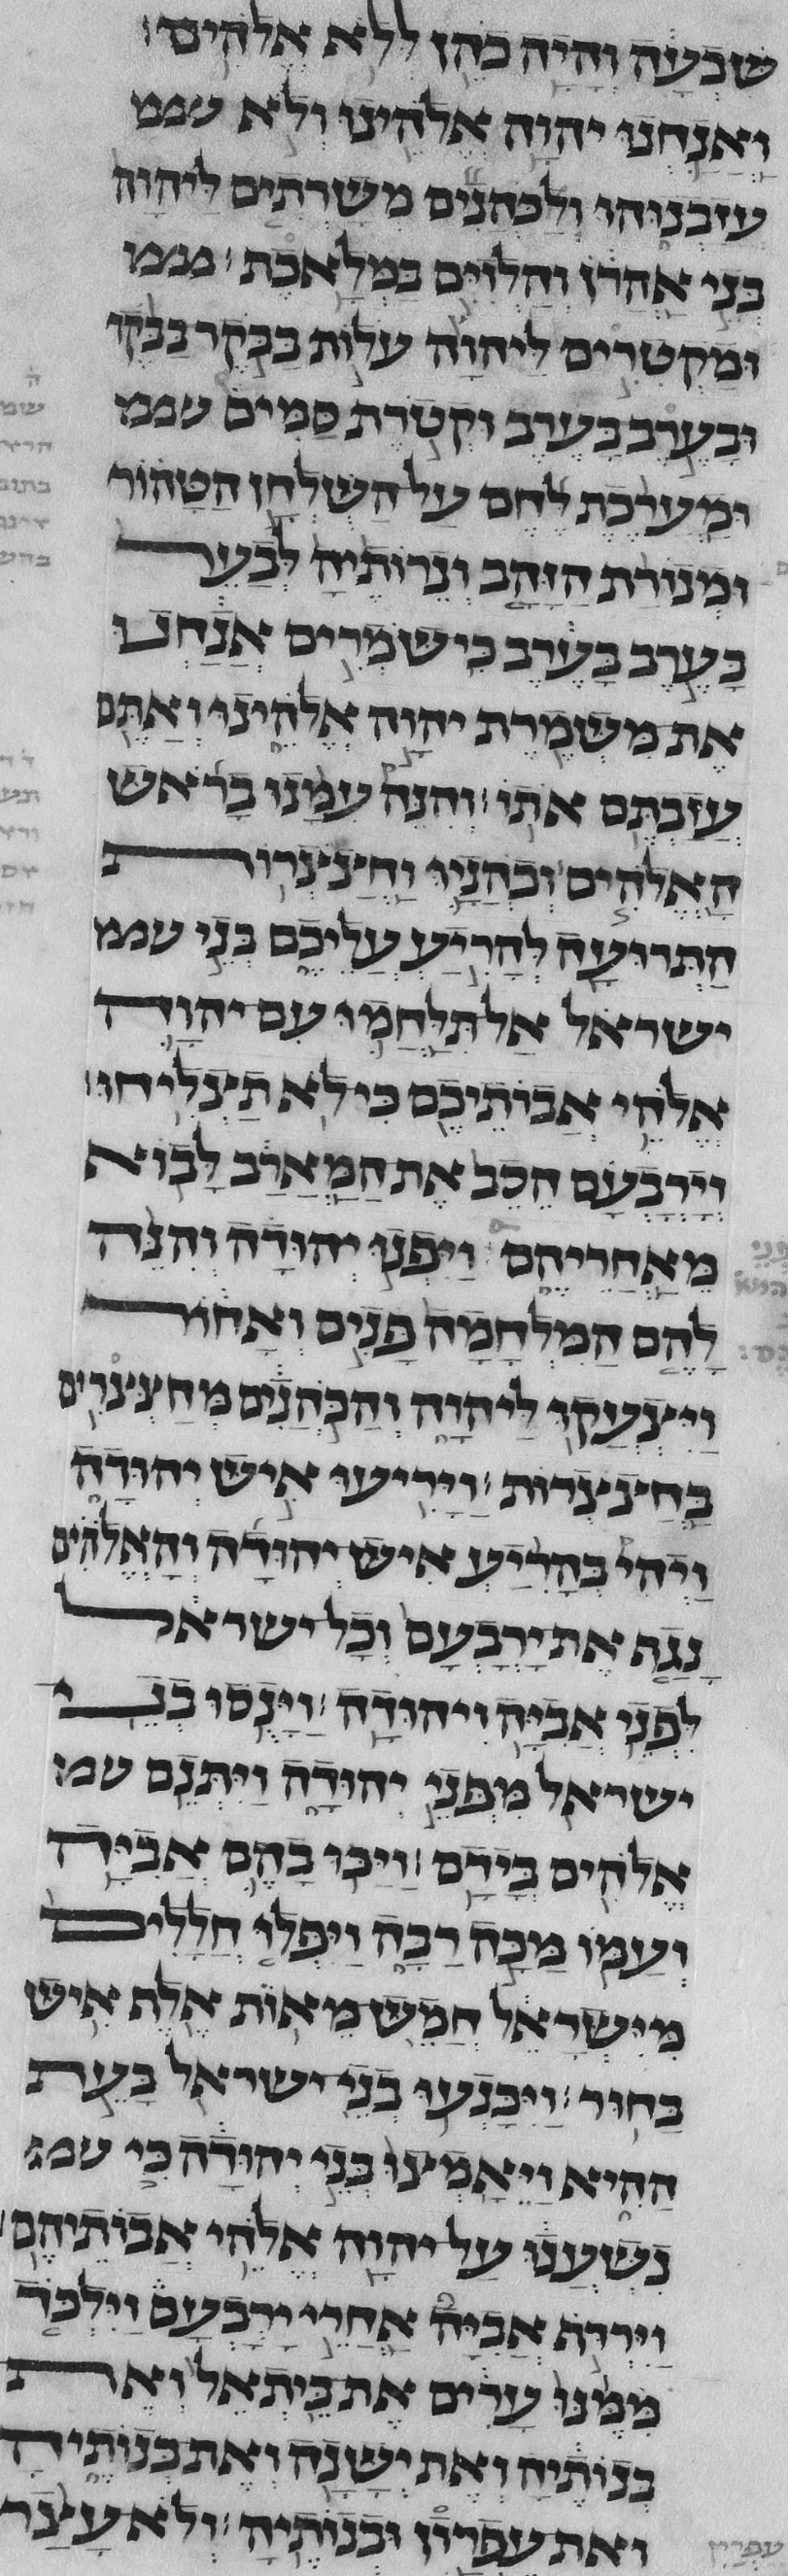 שבעה והיה כהן ללא אלהים׃
ואנחנו יהוה אלהינו ולא
עזבנוהו ולכהנים משרתים ליהוה
בני אהרן והלוים במלאכת׃
ומקטרים ליהוה עלות בבקר בבקר
ובערב בערב וקטרת סמים
ומערכת לחם על השלחן הטהור
ומנורת הזהב ונרותיה לבער
בערב בערב כי שמרים אנחנו
את משמרת יהוה אלהינו ואתם
עזבתם אתו׃ והנה עמנו בראש
האלהים וכהניו וחצצרות
התרועה להריע עליכם בני
ישראל אל תלחמו עם יהוה
אלהי אבותיכם כי לא תצליחו׃
וירבעם הסב את המארב לבוא
מאחריהם ויפנו יהודה והנה
להם המלחמה פנים ואחור
ויצעקו ליהוה והכהנים מחצצרים
בחצצרות׃ ויריעו איש יהודה
ויהי בהריע איש יהודה והאלהים
נגף את ירבעם וכל ישראל
לפני אביה ויהודה׃ וינסו בני
ישראל מפני יהודה ויתנם
אלהים בידם׃ ויכו בהם אביה
ועמו מכה רבה ויפלו חללים
מישראל חמש מאות אלף איש
בחור׃ ויכנעו בני ישראל בעת
ההיא ויאמצו בני יהודה כי
נשענו על יהוה אלהי אבותיהם׃
וירדף אביה אחרי ירבעם וילכד
ממנו ערים את בית אל ואת
בנותיה ואת ישנה ואת בנותיה
ואת עפרון ובנותיה׃ ולא עצר